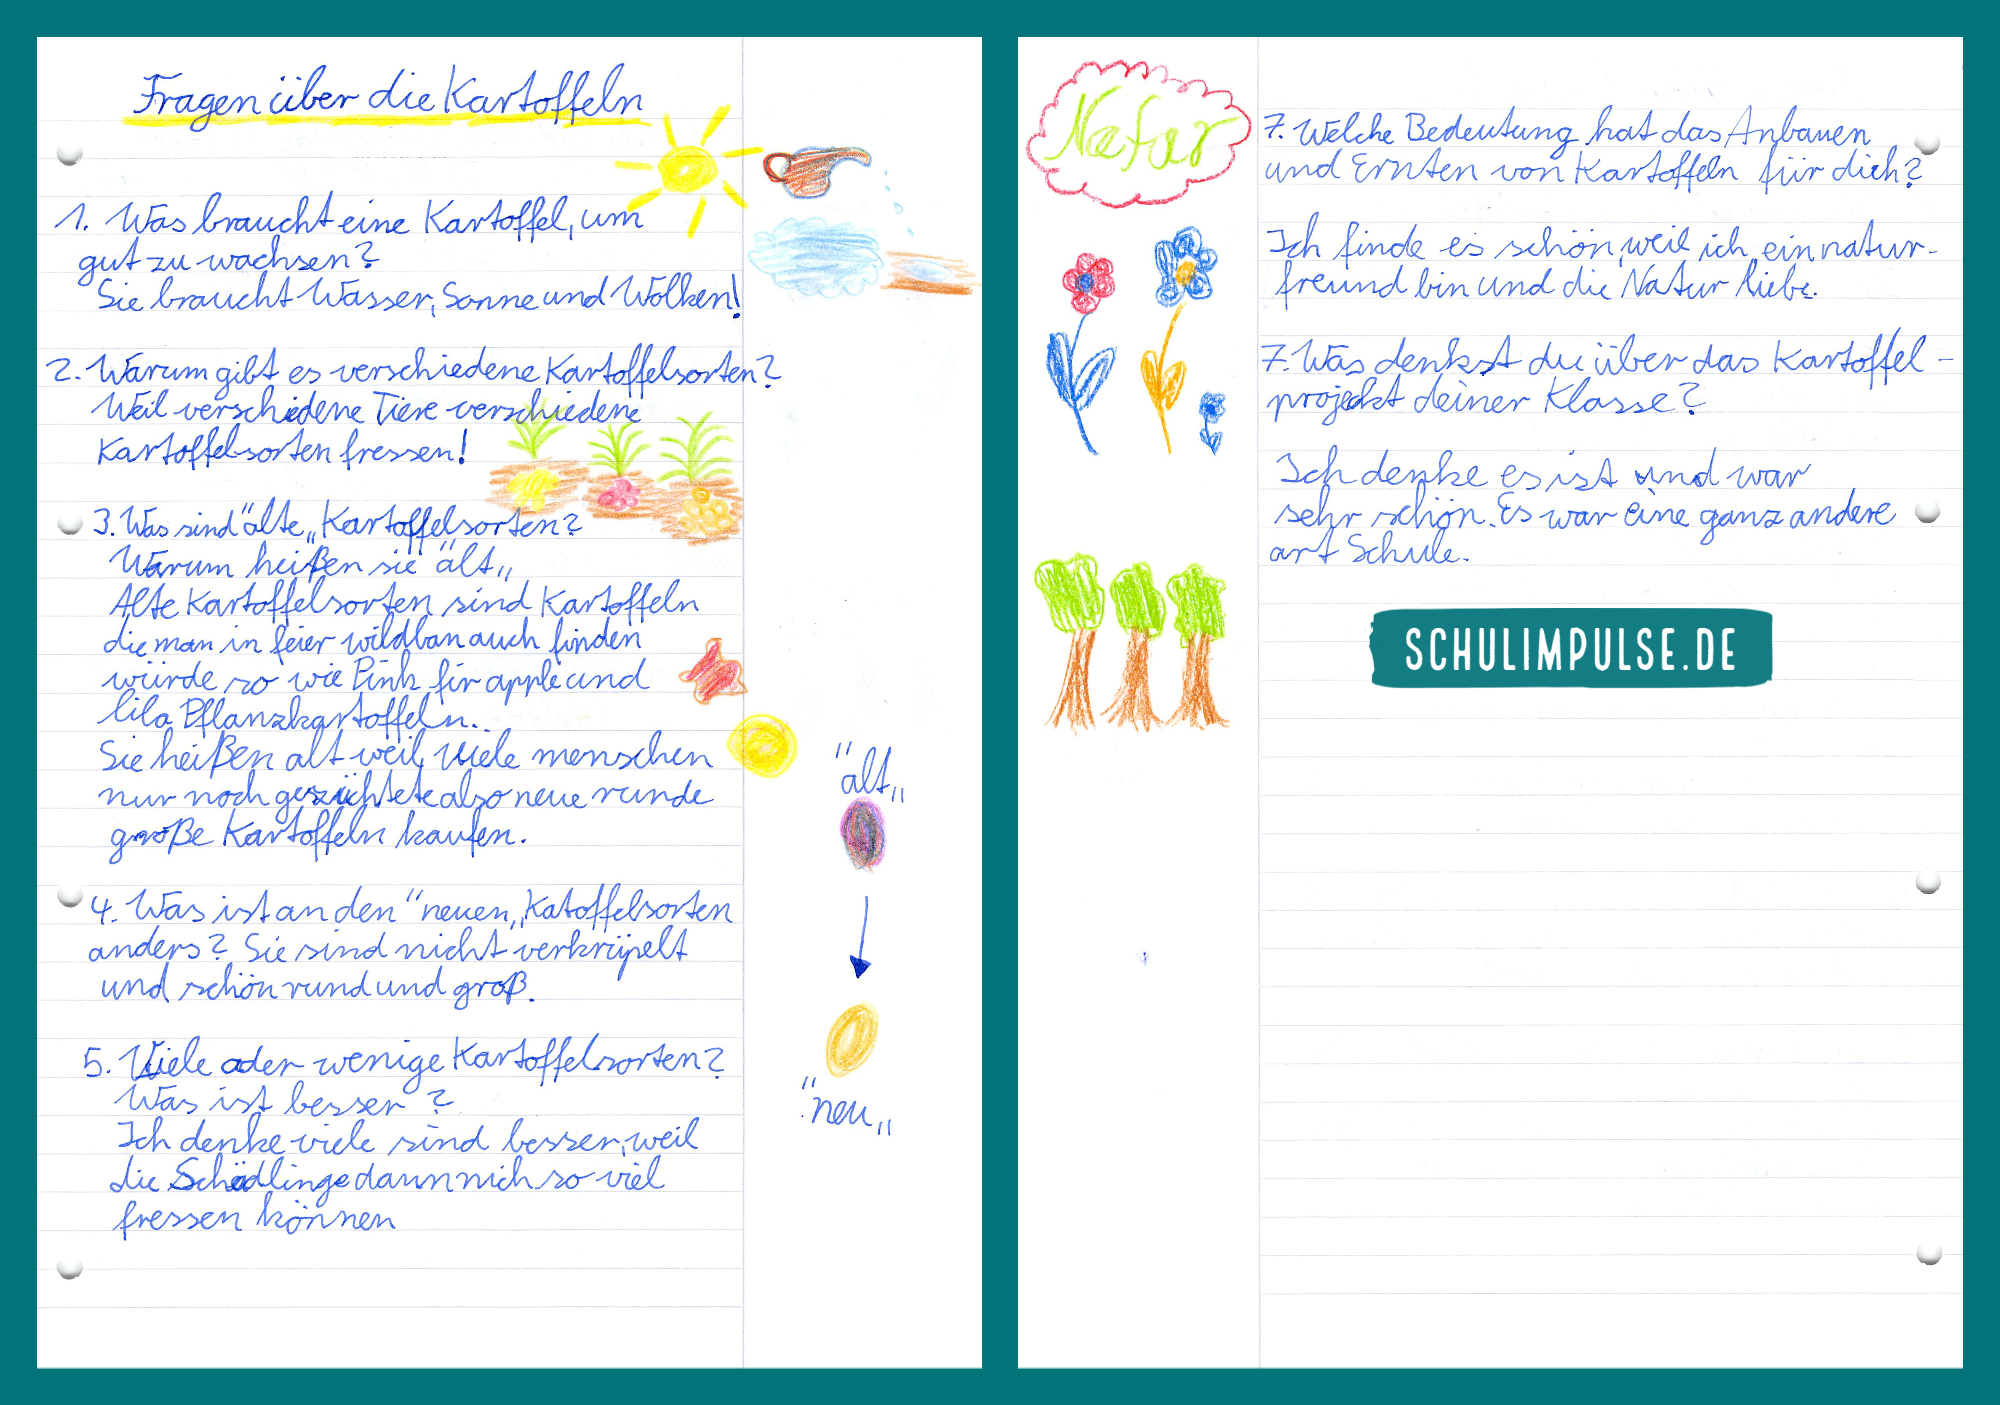 Fragen über die Kartoffeln
1. Was braucht eine Kartoffel, um
gut zu wachsen?
Sie braucht Wasser, Sonne und Wolken!
2. Warum gibt es verschiedene Kartoffelsorten?
Weil verschiedene Tiere verschiedene
Kartoffelsorten fressen!
3. Was sind "alte„ Kartoffelsorten?
Warum heißen sie "alt„
Alte Kartoffelsorten sind Kartoffeln
die man in feier wildban auch finden
würde so wie Pink fir apple und
lila Pflanzkartoffeln.
Sie heißen alt weil viele menschen
nur noch gezüchtete also neue runde
große Kartoffeln kaufen.
"alt„
"neu„
4. Was ist an den "neuen„ Katoffelsorten
anders? Sie sind nicht verkrüpelt
und schön rund und groß.
5. Viele oder wenige Kartoffelsorten?
Was ist besser?
Ich denke viele sind besser, weil
die Schädlinge dann nich so viel
fressen können
Natur
7. Welche Bedeutung hat das Anbauen
und Ernten von Kartoffeln für dich?
Ich finde es schön, weil ich ein natur-
freund bin und die Natur liebe.
7. Was denkst du über das Kartoffel-
projekt deiner Klasse?
Ich denke es ist und war
sehr schön. Es war eine ganz andere
art Schule.
SCHULIMPULSE.DE